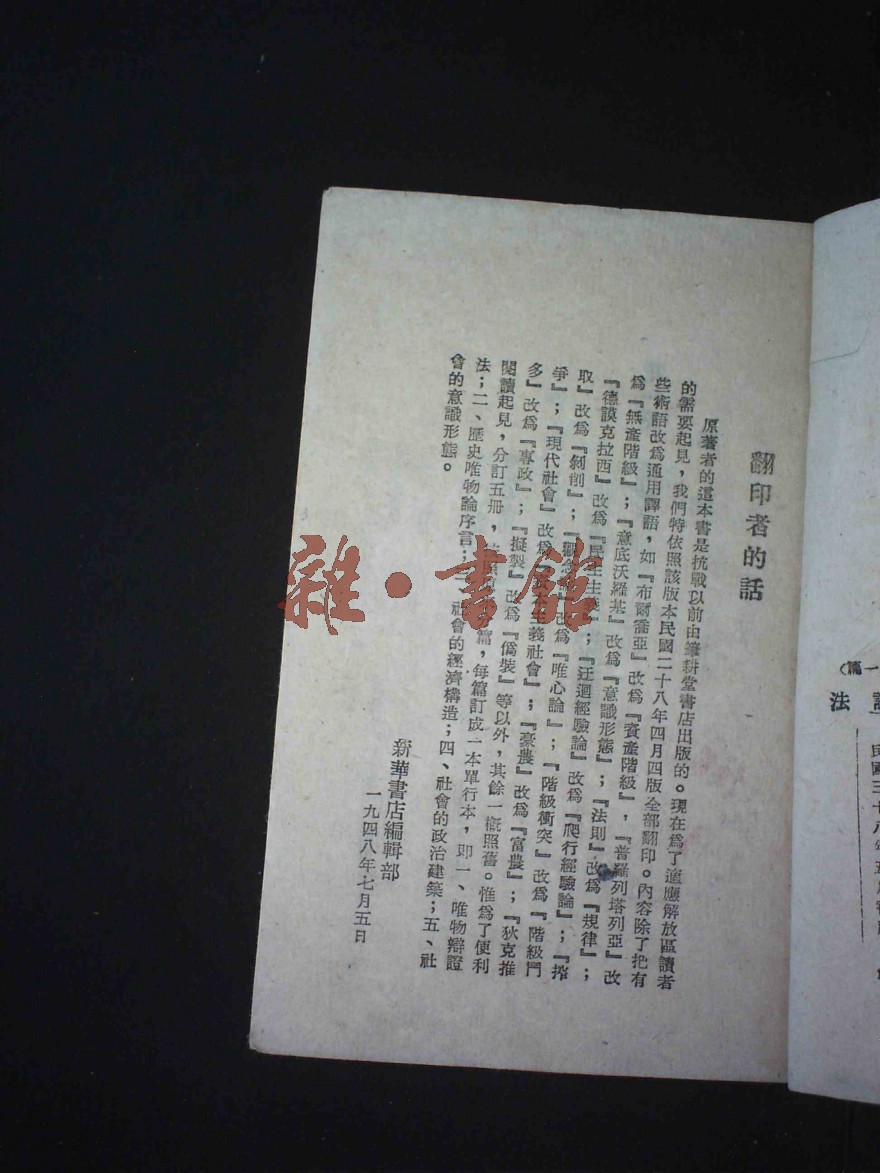 翻印者的話
原著者的這本書是抗戰以前由筆耕堂書店出版的。現在爲了適應解放區讀者
的需要起見，我們特依照該版本民國二十八年四月四版全部翻印。內容除了把有
些術語改爲通用譯語，如『布爾喬亞』改爲『資產階級』，『普羅列塔列亞』改
爲『無產階級』；『意底沃羅基』改爲『意識形態』；『法則』改爲『規律』；
『德謨克拉西』改爲『民主主義』；『迂迴經驗論』改爲『爬行經驗論』；『搾
取』改爲『剝削』；『觀念論』改爲『唯心論』；『階級衝突』改爲『階級鬥
爭』；『現代社會』改爲『資本主義社會』；『豪農』改爲『富農』；『狄克推
多』改爲『專政』；『擬製』改爲『僞裝』等以外，其餘一槪照舊。惟爲了便利
閱讀起見，分訂五册，篇，每篇訂成一本單行本，即一、唯物辯證
法；二、歷史唯物論序言；三、社會的經濟構造；四、社會的政治建築；五、社
會的意識形態。
新華書店編輯部
一九四八年七月五日
雜·書館
一篇）
法